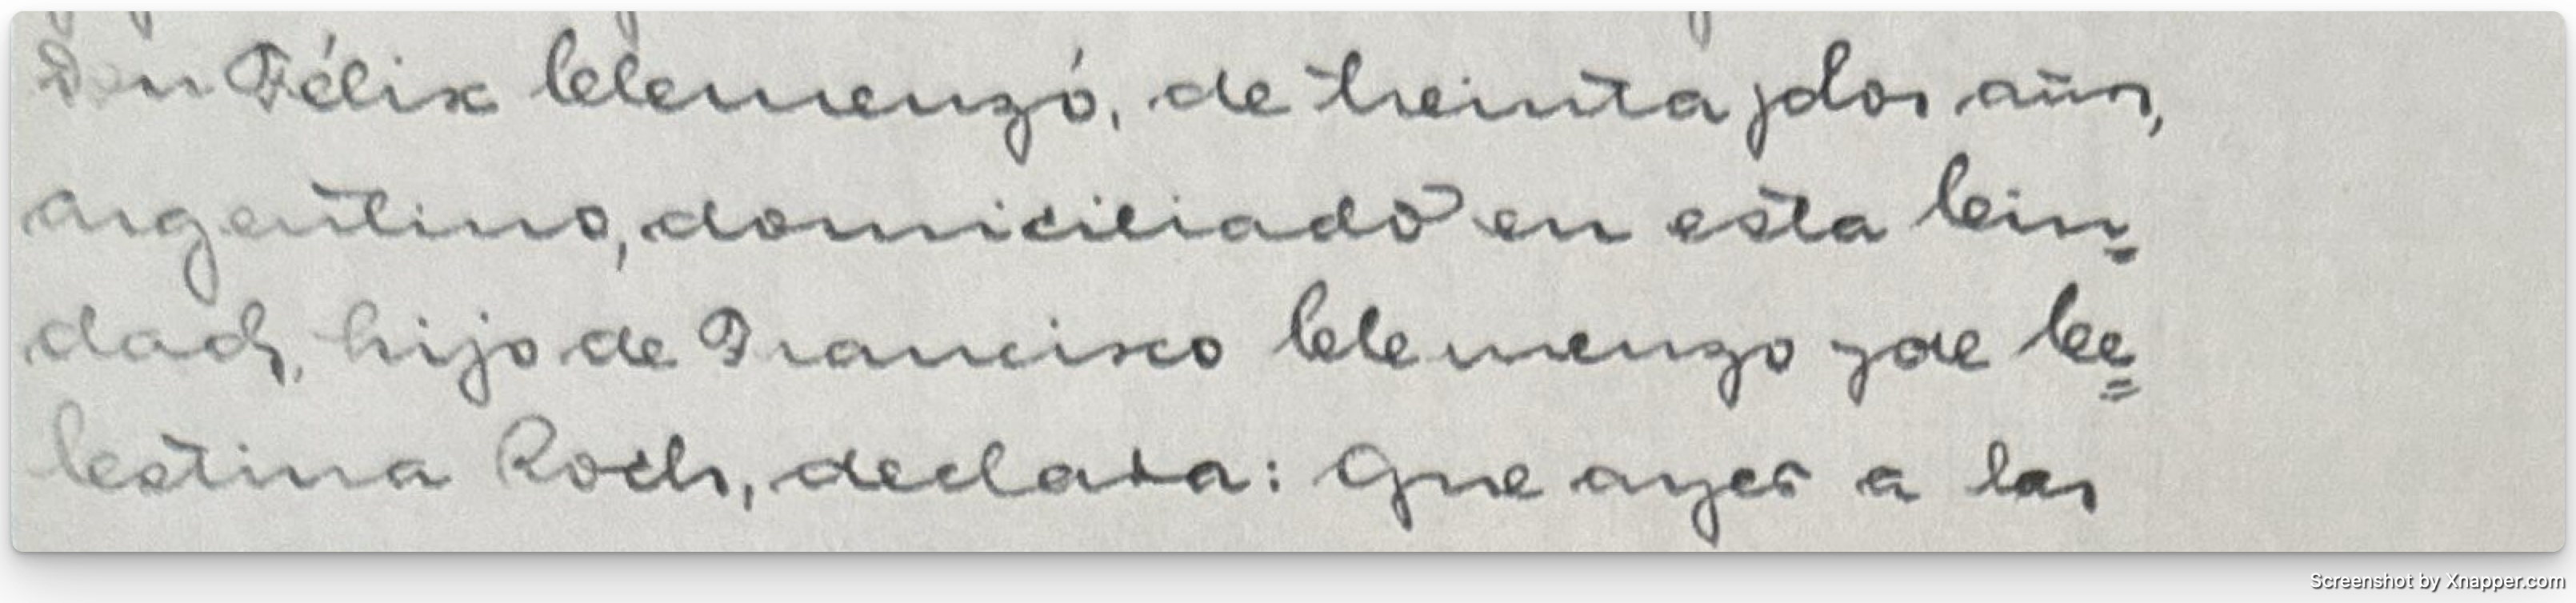 Don Félix Clemenzó, de treinta y dos años,
argentino, domiciliado en esta Ciu=
dad, hijo de Francisco Clemenzo y de Ce=
lestina Roch, declara: Que ayer a las
Screenshot by Xnapper.com